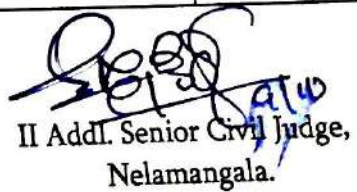 II Addl. Senior Civil Judge,
Nelamangala.